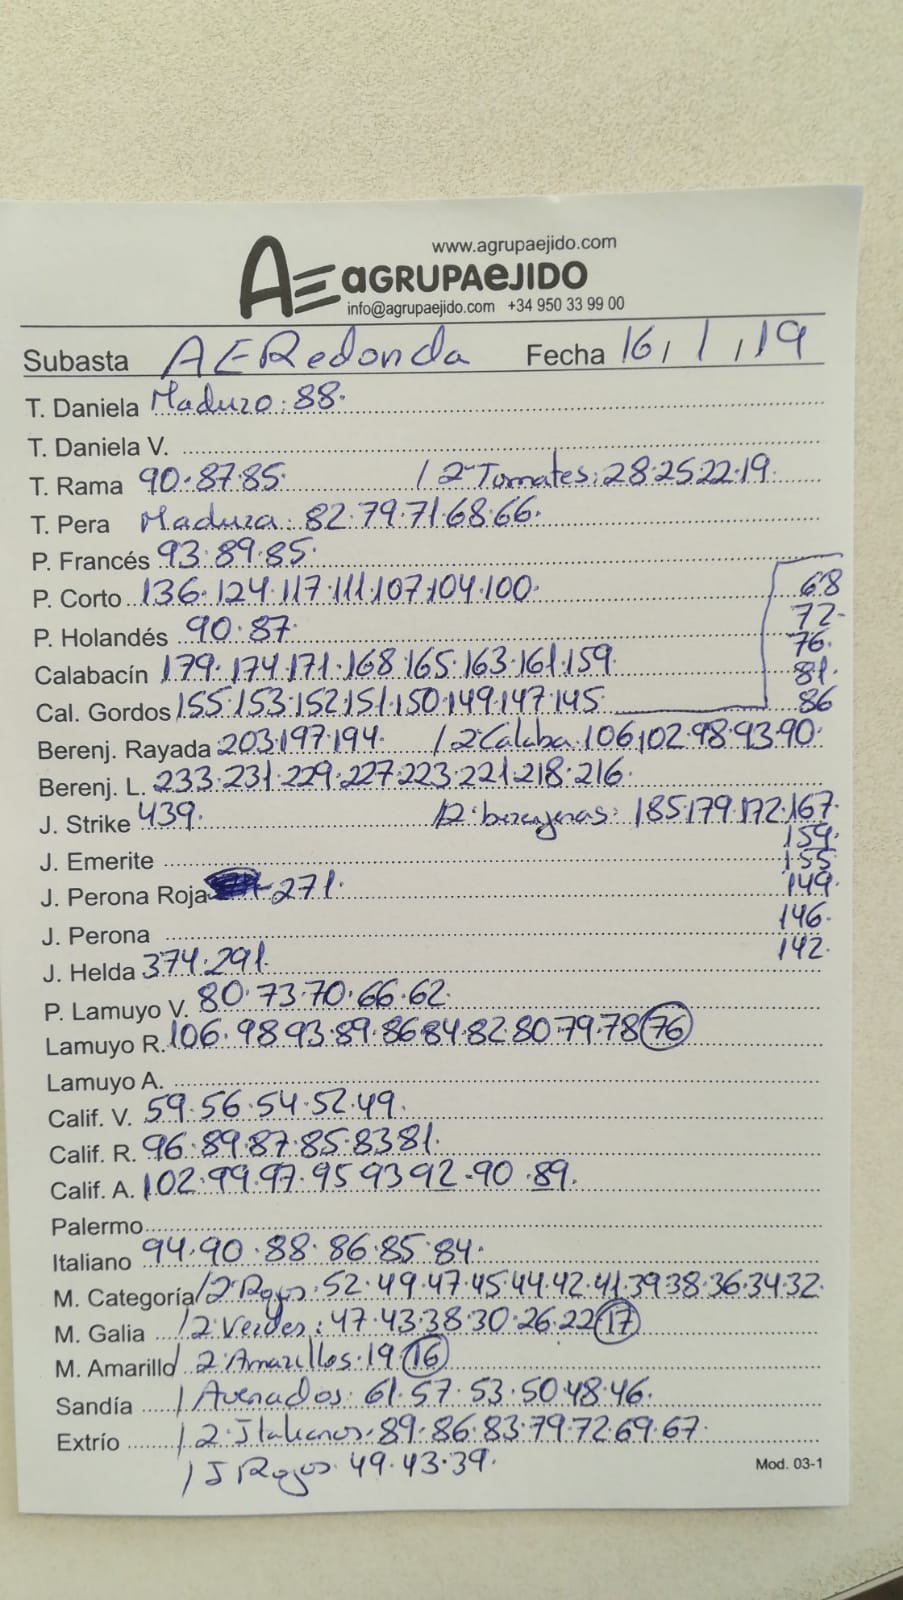 www.agrupaejido.com
AE aGRUPAeJIDO
info@agrupaejido.com +34 950 33 99 00
Subasta AERedonda Fecha 16, 1, 19
T. Daniela Maduro: 88.
T. Daniela V.
T. Rama 90.87.85. / 2ª Tomates: 28.25.22.19.
T. Pera Madura: 82.79.71.68.66.
P. Francés 93.89.85.
P. Corto 136.124.117.111.107.104.100. 68
P. Holandés 90.87. 72-76.
Calabacín 179.174.171.168.165.163.161.159. 81.
Cal. Gordos 155.153.152.151.150.149.147.145 86
Berenj. Rayada 203.197.194. / 2ª Calaba. 106.102.98.93.90.
Berenj. L. 233.231.229.227.223.221.218.216.
J. Strike 439. / 2ª berenjenas: 185.179.172.167.
159.
J. Emerite 155
J. Perona Roja 271. 149.
J. Perona 146.
J. Helda 374.291. 142.
P. Lamuyo V. 80.73.70.66.62.
Lamuyo R. 106.98.93.89.86.84.82.80.79.78 76
Lamuyo A.
Calif. V. 59.56.54.52.49.
Calif. R. 96.89.87.85.83.81.
Calif. A. 102.99.97.95 93 92.90.89.
Palermo
Italiano 94.90.88.86.85.84.
M. Categoría / 2ª Rojos: 52.49.47.45.44.42.41.39.38.36.34.32.
M. Galia / 2ª Verdes: 47.43.38.30.26.22 17
M. Amarillo / 2 Amarillos.19 16
Sandía / Asurados: 61.57.53.50.48.46.
Extrío / 2ª Italianos.89.86.83.79.72.69.67.
/ J Rojos 49.43.39.
Mod. 03-1